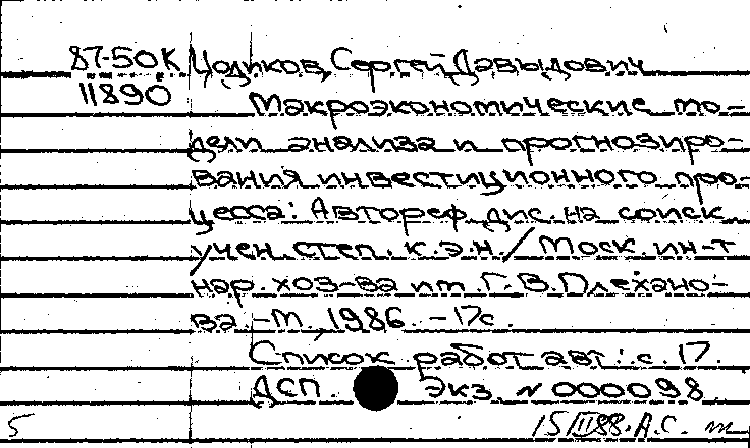 87-50К Цодиков, Сергей Давыдович
11890
Макроэкономические мо-
дели анализа и прогнозиро-
вания инвестиционного про-
цесса: Автореф. дис. на соиск.
учен. степ. к.э.н. / Моск. ин-т
нар. хоз-ва им. Г.В. Плехано-
ва. - М., 1986. - 17с.
Список работ авт.: с. 17.
ДСП. Экз. № 000098
5 15/III88. А.С. т